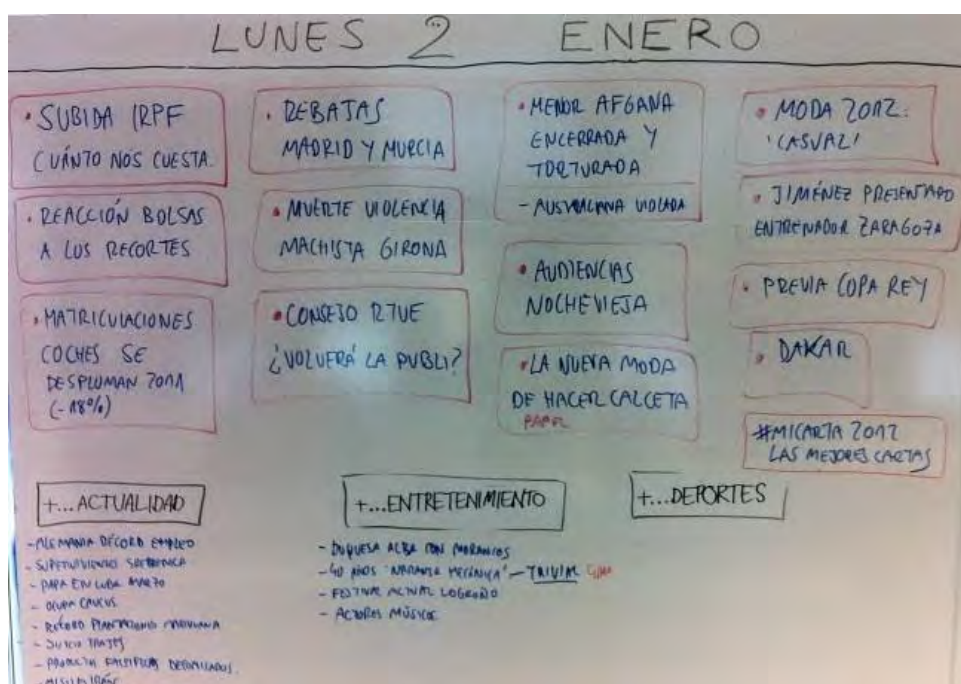 LUNES 2 ENERO
• SUBIDA IRPF
CUÁNTO NOS CUESTA.
• REACCIÓN BOLSAS
A LOS RECORTES
• MATRICULACIONES
COCHES SE
DESPLUMAN 2011
(-18%)
• REBAJAS
MADRID Y MURCIA
• MUERTE VIOLENCIA
MACHISTA GIRONA
• CONSEJO RTVE
¿VOLVERÁ LA PUBLI?
• MENOR AFGANA
ENCERRADA Y
TORTURADA
- AUSTRALIANA VIOLADA
• AUDIENCIAS
NOCHEVIEJA
• LA NUEVA MODA
DE HACER CALCETA
• MODA 2012:
'CASUAL'
• JIMÉNEZ PRESENTADO
ENTRENADOR ZARAGOZA
• PREVIA COPA REY
• DAKAR
#MICARTA2012
LAS MEJORES CARTAS
+...ACTUALIDAD
- ALEMANIA RÉCORD EMPLEO
- PAPA EN CUBA MARZO
- OCUPA CAUCUS
- RÉCORD PLANTACIONES MARIHUANA
- JUICIO TRAJES
- PRODUCTOS FALSIFICADOS DECOMISADOS.
- MISILES IRÁN
+...ENTRETENIMIENTO
- DUQUESA ALBA CON
- 40 AÑOS 'NARANJA MECÁNICA' - TRIVIAL
- FESTIVAL ACTUAL LOGROÑO
- ACTORES MÚSICOS
+...DEPORTES